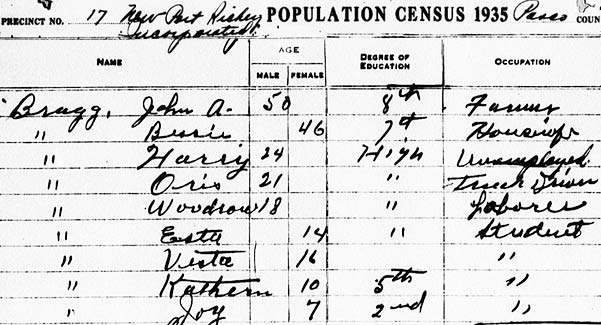 PRECINCT NO. 17 New Port Richey POPULATION CENSUS 1935 Pasco COUN
Incorporated
NAME AGE DEGREE OF EDUCATION OCCUPATION
MALE FEMALE
Bragg, John A. 50 8th Farmer
" Bessie 46 7th Housewife
" Harry 24 High Unemployed
" Oris 21 " Truck Driver
" Woodrow 18 " Laborer
" Esta 14 " Student
" Vista 16 "
" Kathern 10 5th "
" Joy 7 2nd "